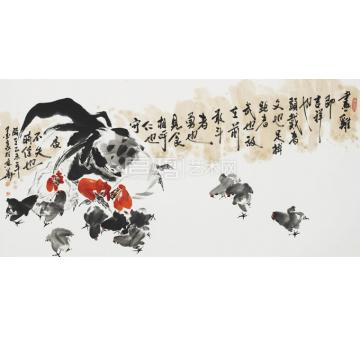 畫雞
即
吉祥
也
頭戴者
文也足搏
距者
武也敌
在前
敢斗
者
勇也
見食
相呼
仁也
守
夜
不失
時信也